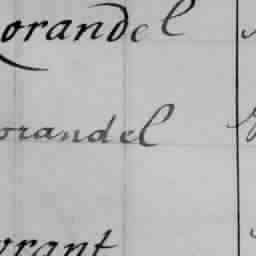 orandel
orandel
rant